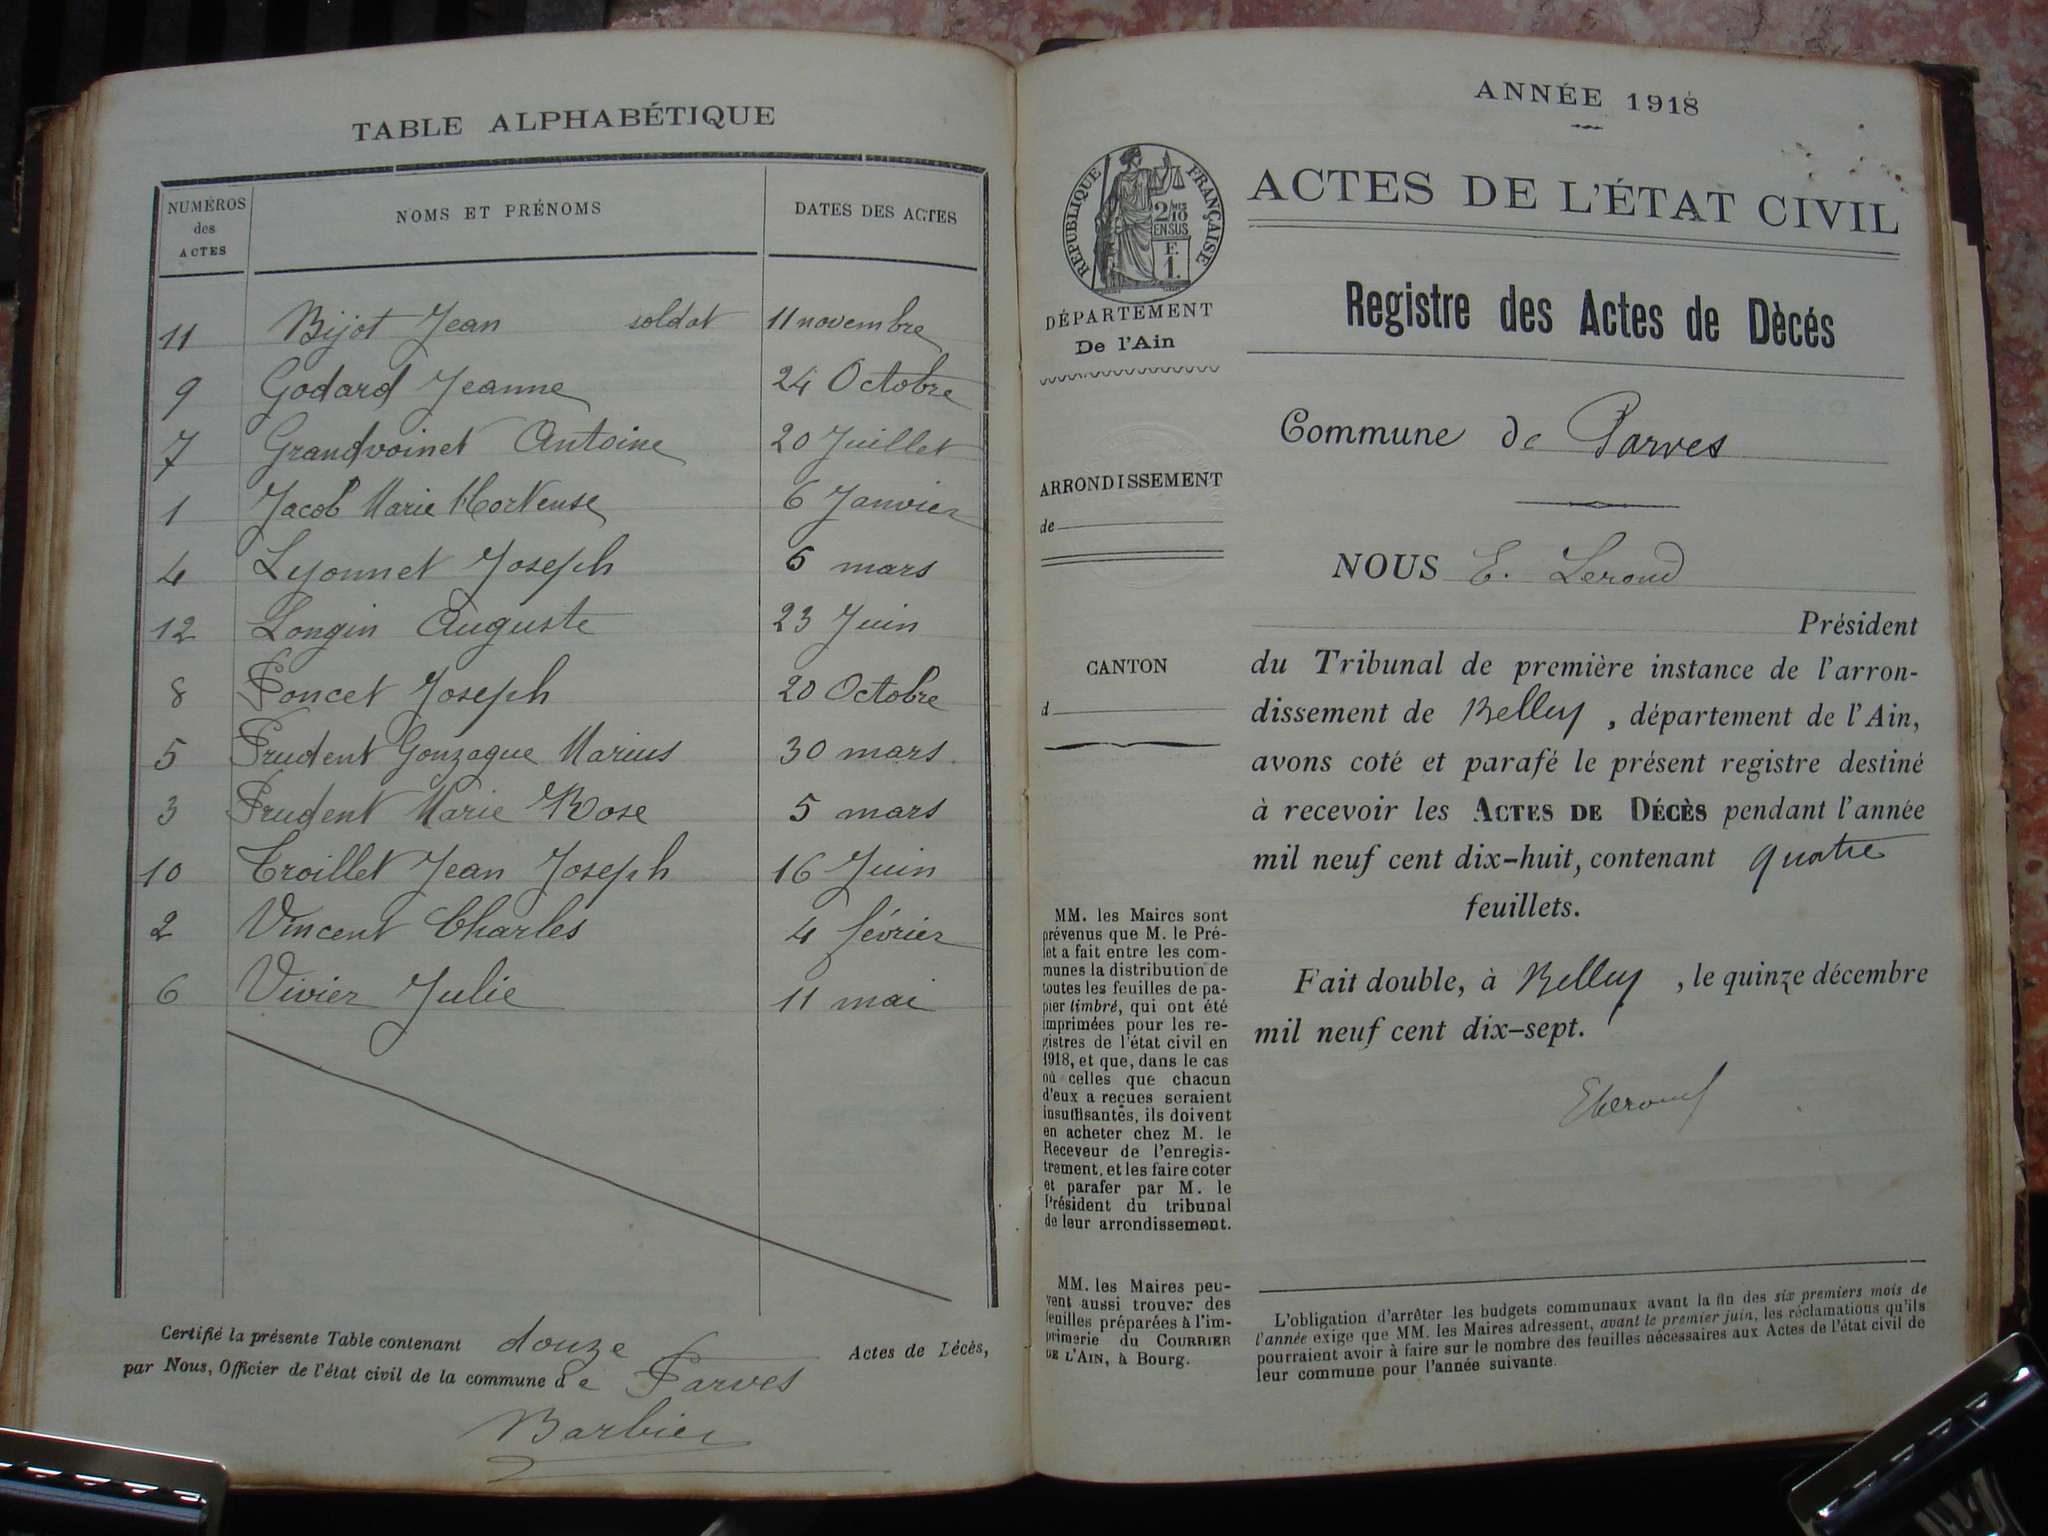 TABLE ALPHABÉTIQUE
NUMÉROS
des
ACTES
NOMS ET PRÉNOMS
DATES DES ACTES
11 Bijot Jean soldat 11 novembre
9 Godard Jeanne 24 Octobre
7 Grandvoinet Antoine 20 Juillet
1 Jacob Marie Hortense 6 Janvier
4 Lyonnet Joseph 6 mars
12 Longin Auguste 23 Juin
8 Poncet Joseph 20 Octobre
5 Prudent Gonzague Marius 30 mars
3 Prudent Marie Rose 5 mars
10 Troillet Jean Joseph 16 Juin
2 Vincent Charles 4 février
6 Vivier Julie 11 mai
Certifié la présente Table contenant douze Actes de Décès,
par Nous, Officier de l'état civil de la commune de Parves
Barbier
ANNÉE 1918
RÉPUBLIQUE FRANÇAISE
2/10
EN SUS
F.
1.
ACTES DE L'ÉTAT CIVIL
DÉPARTEMENT
De l'Ain
Registre des Actes de Dècés
Commune de Parves
ARRONDISSEMENT
de
NOUS E. Leroud
Président
CANTON
d
du Tribunal de première instance de l'arron-
dissement de Belley, département de l'Ain,
avons coté et parafé le présent registre destiné
à recevoir les ACTES DE DÉCÈS pendant l'année
mil neuf cent dix-huit, contenant quatre
feuillets.
Fait double, à Belley, le quinze décembre
mil neuf cent dix-sept.
MM. les Maires sont
prévenus que M. le Pré-
fet a fait entre les com-
munes la distribution de
toutes les feuilles de pa-
pier timbré, qui ont été
imprimées pour les re-
gistres de l'état civil en
1918, et que, dans le cas
où celles que chacun
d'eux a reçues seraient
insuffisantes, ils doivent
en acheter chez M. le
Receveur de l'enregis-
trement, et les faire coter
et parafer par M. le
Président du tribunal
de leur arrondissement.
MM. les Maires peu-
vent aussi trouver des
feuilles préparées à l'im-
primerie du COURRIER
DE L'AIN, à Bourg.
L'obligation d'arrêter les budgets communaux avant la fin des six premiers mois de
l'année exige que MM. les Maires adressent, avant le premier juin, les réclamations qu'ils
pourraient avoir à faire sur le nombre des feuilles nécessaires aux Actes de l'état civil de
leur commune pour l'année suivante.